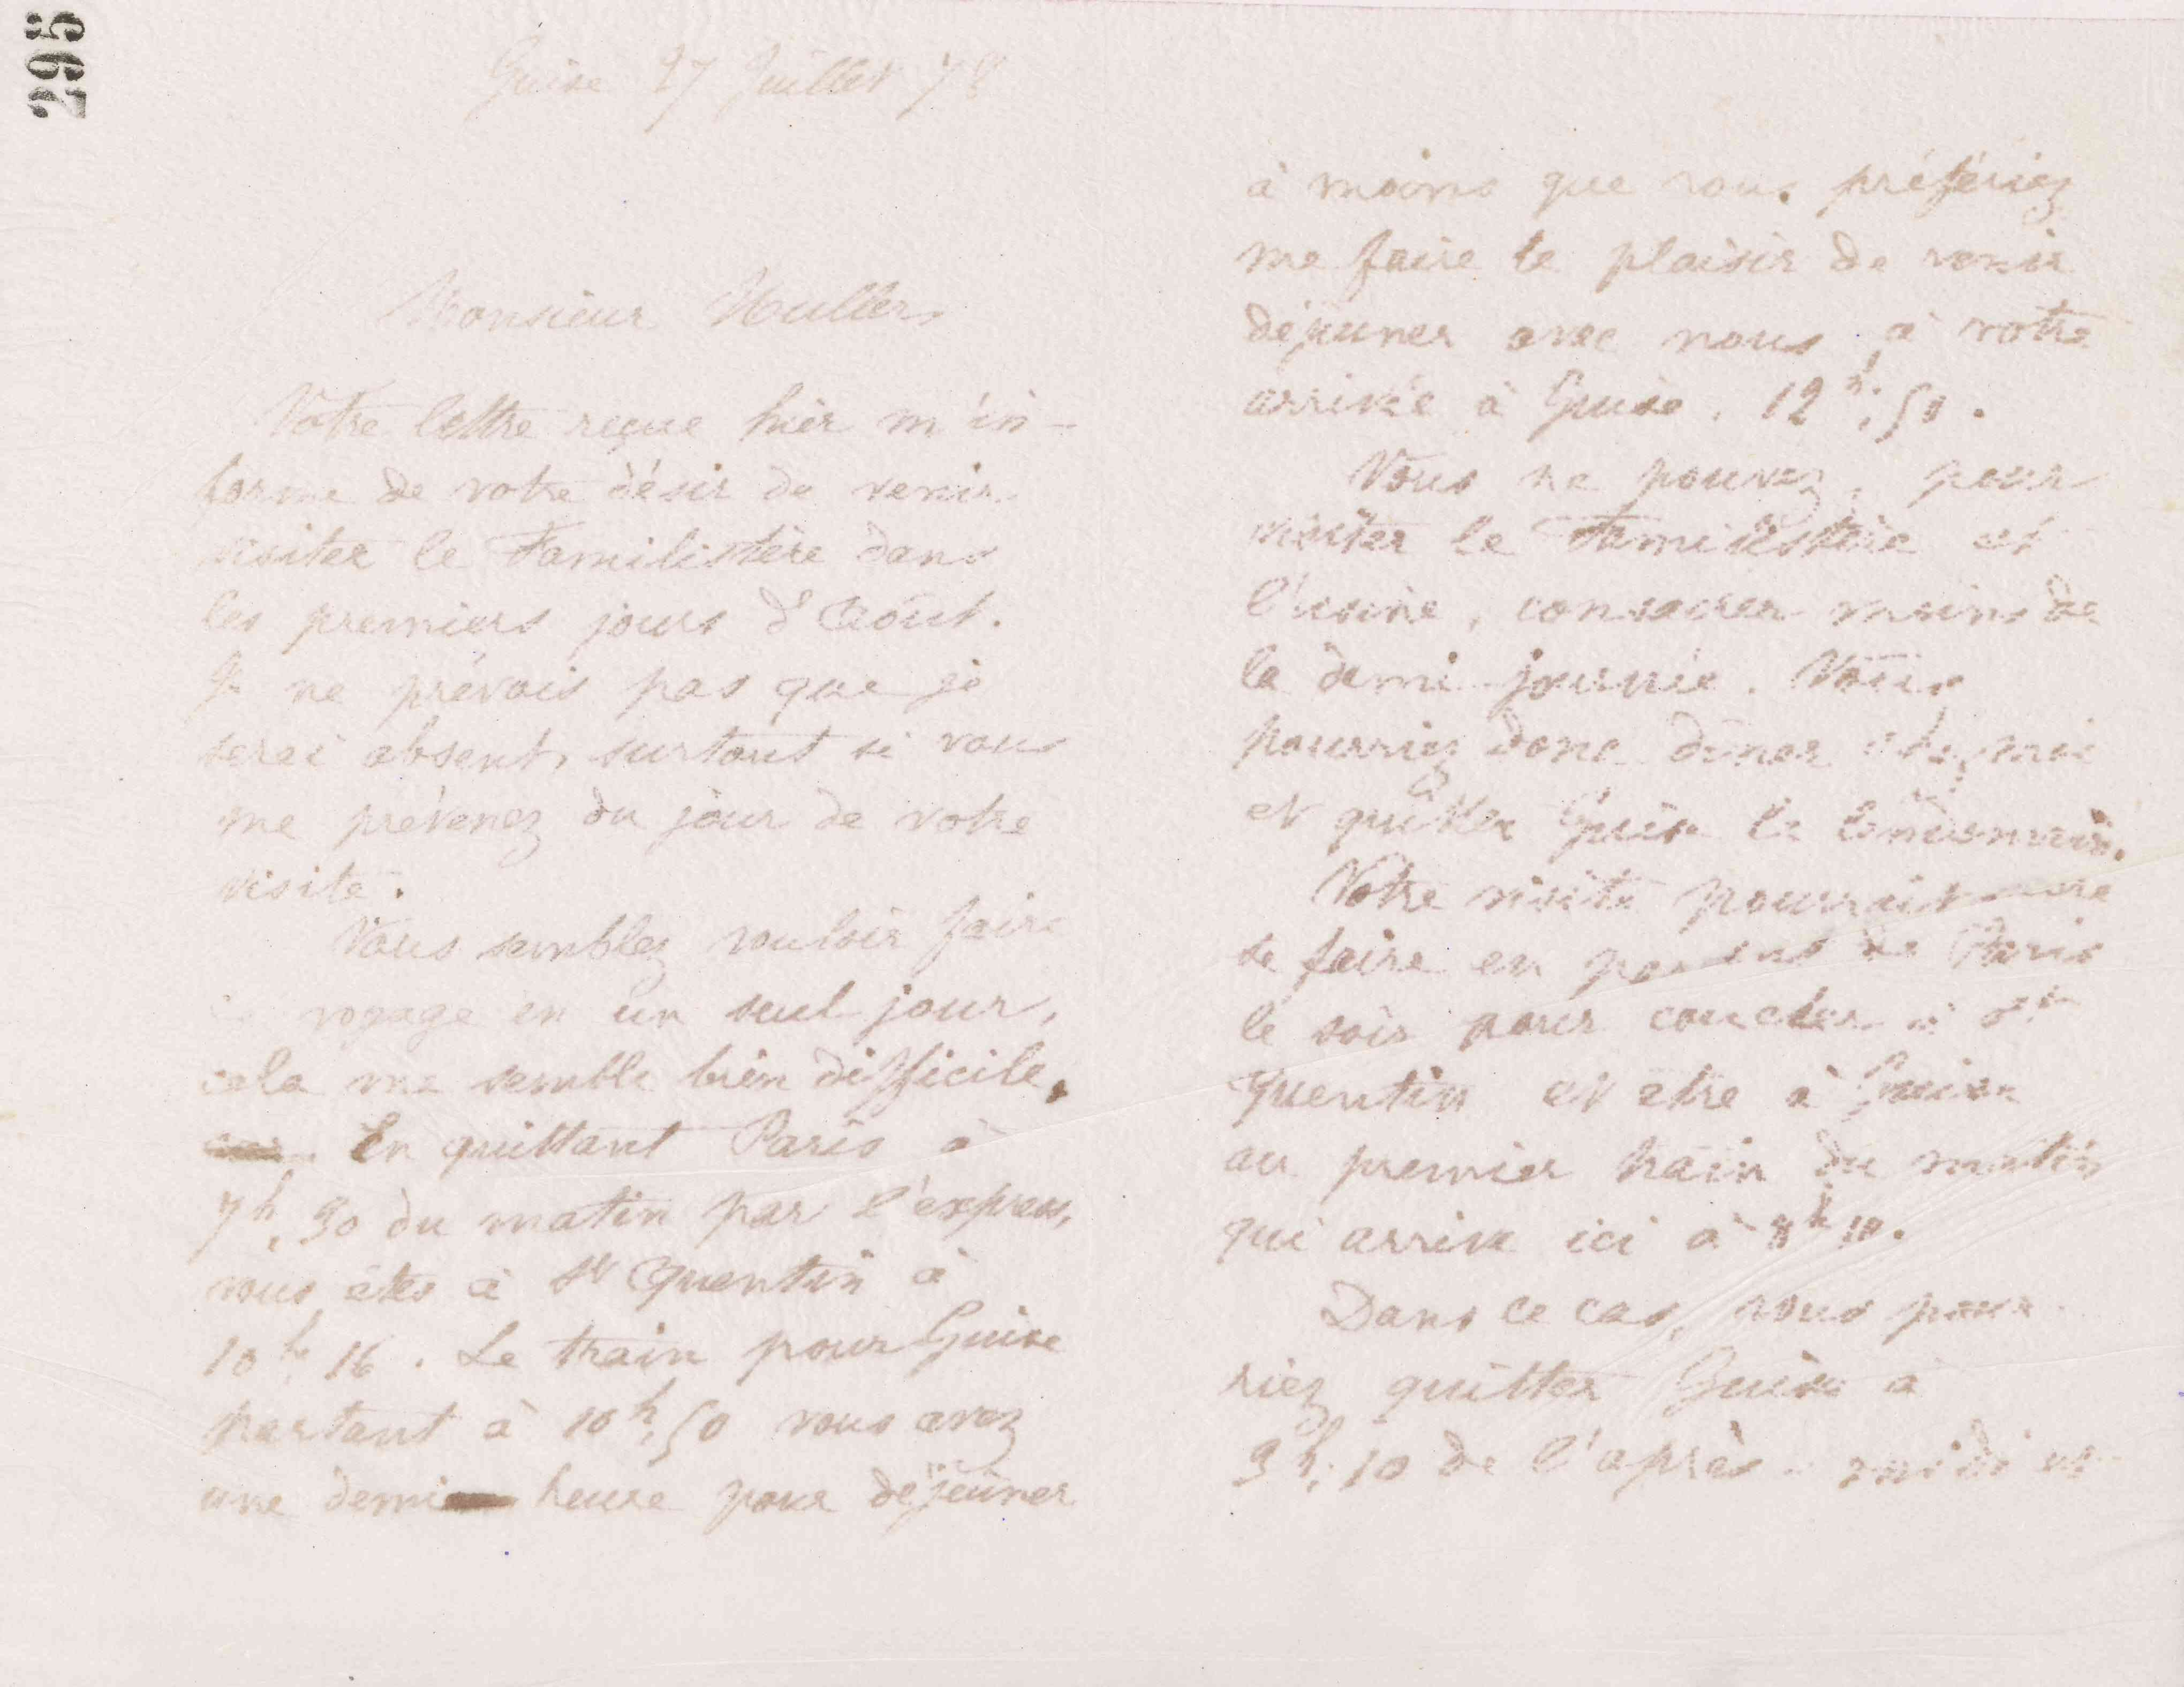 295
Guise 27 Juillet 78
Monsieur Muller,
Votre lettre reçue hier m'in-
forme de votre désir de venir
visiter le Familistère dans
les premiers jours d'Août.
Je ne prévois pas que je
serai absent, surtout si vous
me prévenez du jour de votre
visite.
Vous semblez vouloir faire
ce voyage en un seul jour,
cela me semble bien difficile.
En quittant Paris à
7h,30 du matin par l'express,
vous êtes à St Quentin à
10h,16. Le train pour Guise
partant à 10h,50 vous avez
une demi heure pour déjeûner
à moins que vous préfériez
me faire le plaisir de venir
déjeuner avec nous à votre
arrivée à Guise, 12h,50.
Vous ne pouvez, pour
visiter le Familistère et
l'usine, consacrer moins de
la demi-journée. Vous
pourriez donc dîner chez moi
et quitter Guise le lendemain.
Votre visite pourrait
se faire en partant de Paris
le soir pour coucher à St
Quentin et être à Guise
au premier train du matin
qui arrive ici à 8h10.
Dans ce cas, vous pour-
riez quitter Guise à
3h,10 de l'après-midi et